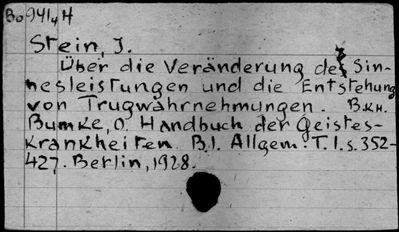 Bo 941/4 H
Stein, J.
Über die Veränderung der Sin-
nesleistungen und die Entstehung
von Trugwahrnehmungen. Вкн.
Bumke, O. Handbuch der Geistes-
krankheiten. B.I. Allgem. T.I.s.352-
427. Berlin, 1928.